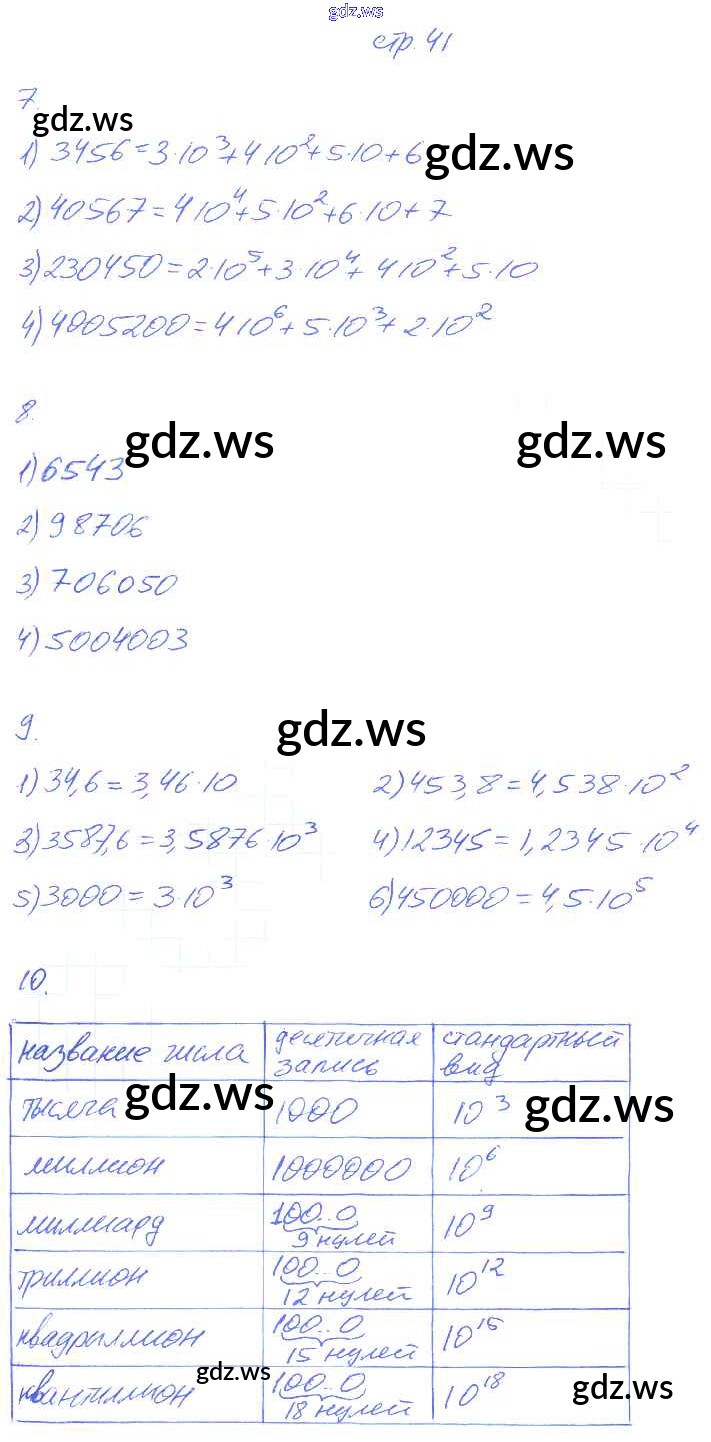 gdz.ws
стр. 41
7.
gdz.ws
1) 3456 = 3·10³+4 10²+5·10+6
gdz.ws
2) 40567 = 4 10⁴+5·10²+6·10+7
3) 230450 = 2·10⁵+3·10⁴+ 4 10²+5·10
4) 4005200 = 4 10⁶+5·10³+2·10²
8.
gdz.ws gdz.ws
1) 6543
2) 98706
3) 706050
4) 5004003
9.
gdz.ws
1) 34,6 = 3,46·10 2) 453,8 = 4,538·10²
3) 3587,6 = 3,5876·10³ 4) 12345 = 1,2345·10⁴
5) 3000 = 3·10³ 6) 450000 = 4,5·10⁵
10.
название числа десятичная запись стандартный вид
gdz.ws gdz.ws
тысяча 1000 10³
миллион 1000000 10⁶
миллиард 100..0 10⁹
9 нулей
триллион 100..0 10¹²
12 нулей
квадриллион 100..0 10¹⁵
15 нулей
gdz.ws gdz.ws
квантиллион 100..0 10¹⁸
18 нулей